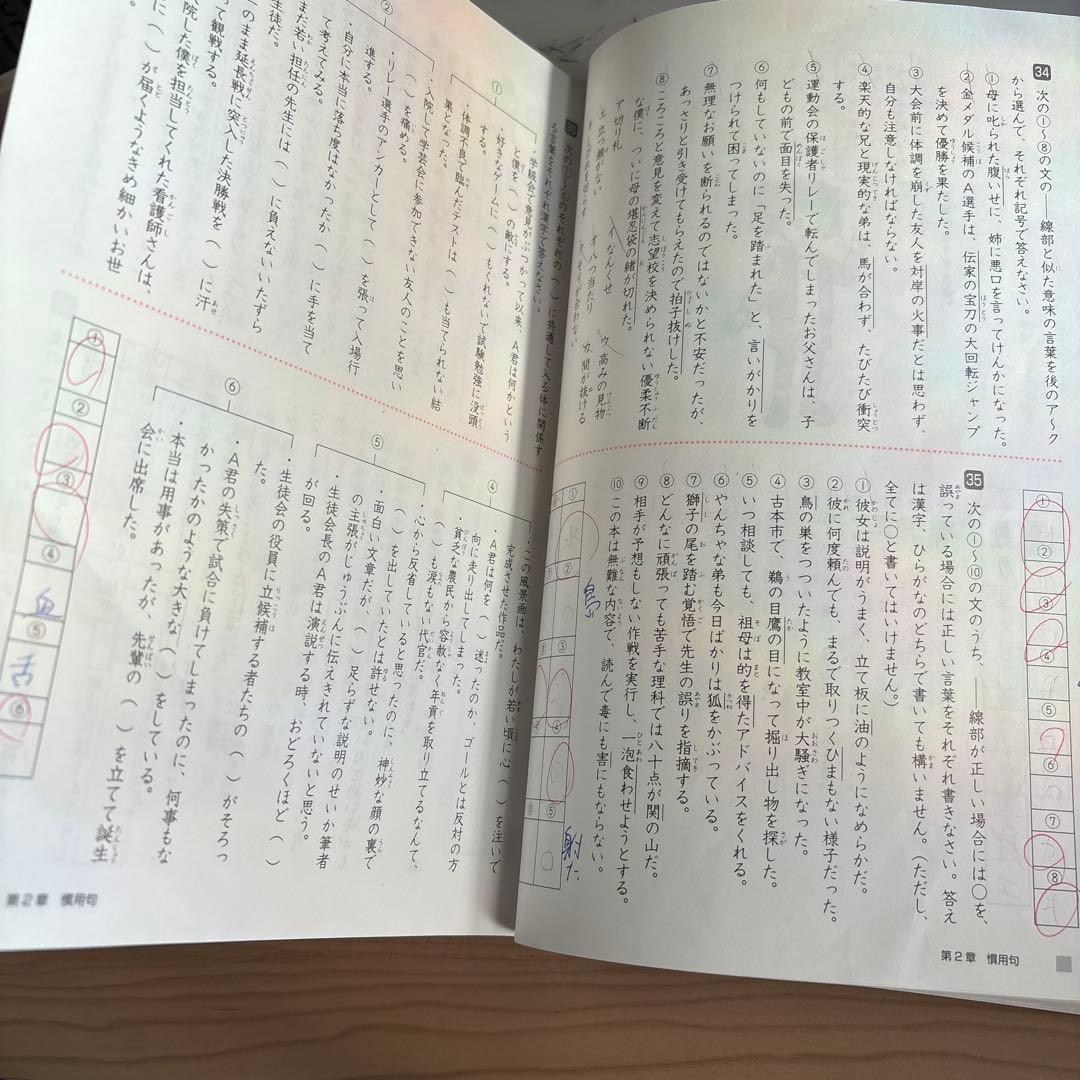 34
次の①〜⑧の文の――線部と似た意味の言葉を後のア〜ク
から選んで、それぞれ記号で答えなさい。
①母に叱られた腹いせに、姉に悪口を言ってけんかになった。
②金メダル候補のA選手は、伝家の宝刀の大回転ジャンプ
を決めて優勝を果たした。
③大会前に体調を崩した友人を対岸の火事だとは思わず、
自分も注意しなければならない。
④楽天的な兄と現実的な弟は、馬が合わず、たびたび衝突
する。
⑤運動会の保護者リレーで転んでしまったお父さんは、子
どもの前で面目を失った。
⑥何もしていないのに「足を踏まれた」と、言いがかりを
つけられて困ってしまった。
⑦無理なお願いを断られるのではないかと不安だったが、
あっさりと引き受けてもらえたので拍子抜けした。
⑧ころころと意見を変えて志望校を決められない優柔不断
な僕に、ついに母の堪忍袋の緒が切れた。
ア 切り札
イ なんくせ
ウ 高みの見物
エ 立つ瀬がない
オ 八つ当たり
カ 間が抜ける
35
次の①〜⑩の文のうち、――線部が正しい場合には○を、
誤っている場合には正しい言葉をそれぞれ書きなさい。答え
は漢字、ひらがなのどちらで書いても構いません。(ただし、
全てに○と書いてはいけません。)
①彼女は説明がうまく、立て板に油のようになめらかだ。
②彼に何度頼んでも、まるで取りつくひまもない様子だった。
③鳥の巣をつついたように教室中が大騒ぎになった。
④古本市で、鵜の目鷹の目になって掘り出し物を探した。
⑤いつ相談しても、祖母は的を得たアドバイスをくれる。
⑥やんちゃな弟も今日ばかりは狐をかぶっている。
⑦獅子の尾を踏む覚悟で先生の誤りを指摘する。
⑧どんなに頑張っても苦手な理科では八十点が関の山だ。
⑨相手が予想もしない作戦を実行し、一泡食わせようとする。
⑩この本は無難な内容で、読んで毒にも害にもならない。
射た
第2章 慣用句
に共通して入る体に関係す
る言葉をそれぞれ漢字で答えなさい。
①
・学級会で意見がぶつかって以来、A君は何かという
と僕を( )の敵にする。
・好きなゲームに( )もくれないで試験勉強に没頭
する。
・体調不良で臨んだテストは( )も当てられない結
果となった。
②
・入院して学芸会に参加できない友人のことを思い
( )を痛める。
・リレー選手のアンカーとして( )を張って入場行
進する。
・自分に本当に落ち度はなかったか( )に手を当て
て考えてみる。
まだ若い担任の先生には( )に負えないいたずら
生徒だ。
のまま延長戦に突入した決勝戦を( )に汗
って観戦する。
院した僕を担当してくれた看護師さんは、
に( )が届くようなきめ細かいお世
④
・この風景画は、わたしが若い頃に心( )を注いで
完成させた作品だ。
・A君は何を( )迷ったのか、ゴールとは反対の方
向に走り出してしまった。
・貧乏な農民から容赦なく年貢を取り立てるなんて、
( )も涙もない代官だ。
⑤
・心から反省していると思ったのに、神妙な顔の裏で
( )を出していたとは許せない。
・面白い文章だが、( )足らずな説明のせいか筆者
の主張がじゅうぶんに伝えきれていないと思う。
・生徒会長のA君は演説する時、おどろくほど( )
が回る。
⑥
・生徒会の役員に立候補する者たちの( )がそろっ
た。
・A君の失策で試合に負けてしまったのに、何事もな
かったかのような大きな( )をしている。
・本当は用事があったが、先輩の( )を立てて誕生
会に出席した。
血
舌
第2章 慣用句